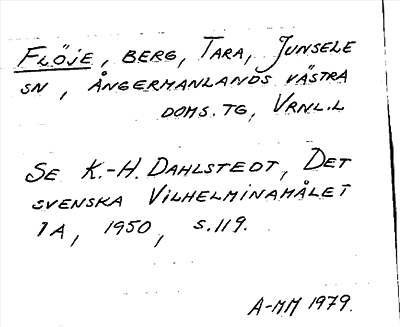 FLÖJE, BERG, TARA, JUNSELE
SN, ÅNGERMANLANDS VÄSTRA
DOMS. TG, VRNL.L
SE K.-H. DAHLSTEDT, DET
SVENSKA VILHELMINAMÅLET
1A, 1950, S. 119.
A-MM 1979.